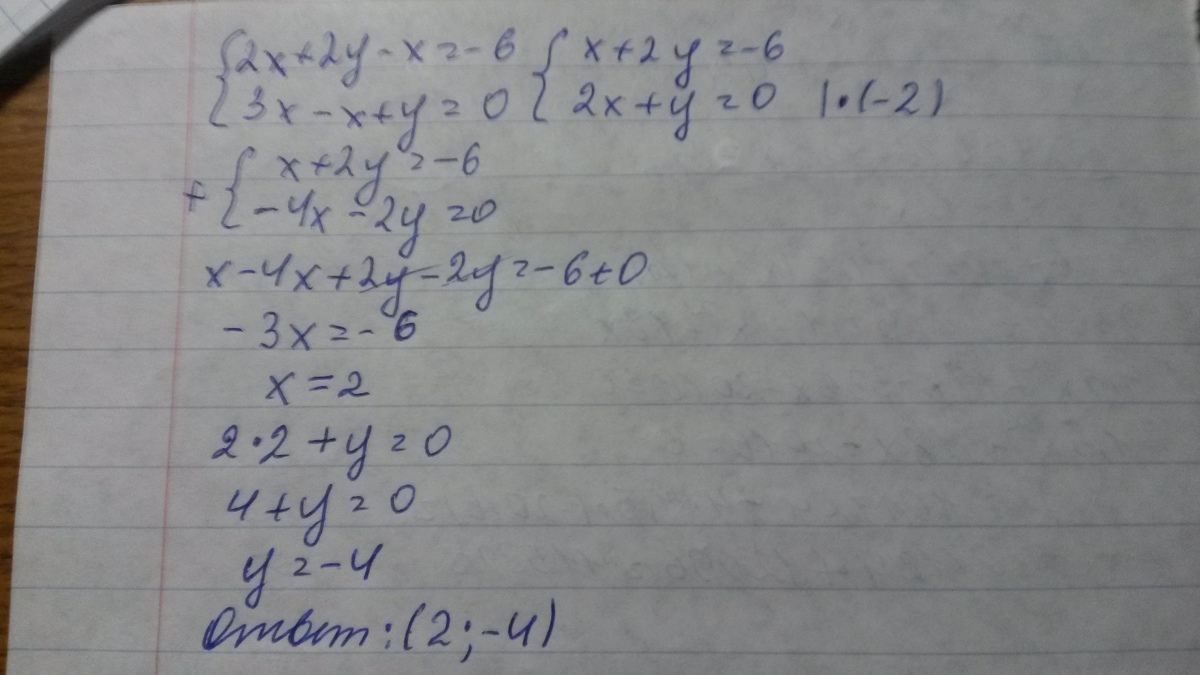 {2x+2y-x=-6 {x+2y=-6
{3x-x+y=0 {2x+y=0 |·(-2)
+ {x+2y=-6
{-4x-2y=0
x-4x+2y-2y=-6+0
-3x=-6
x=2
2·2+y=0
4+y=0
y=-4
Ответ:(2;-4)